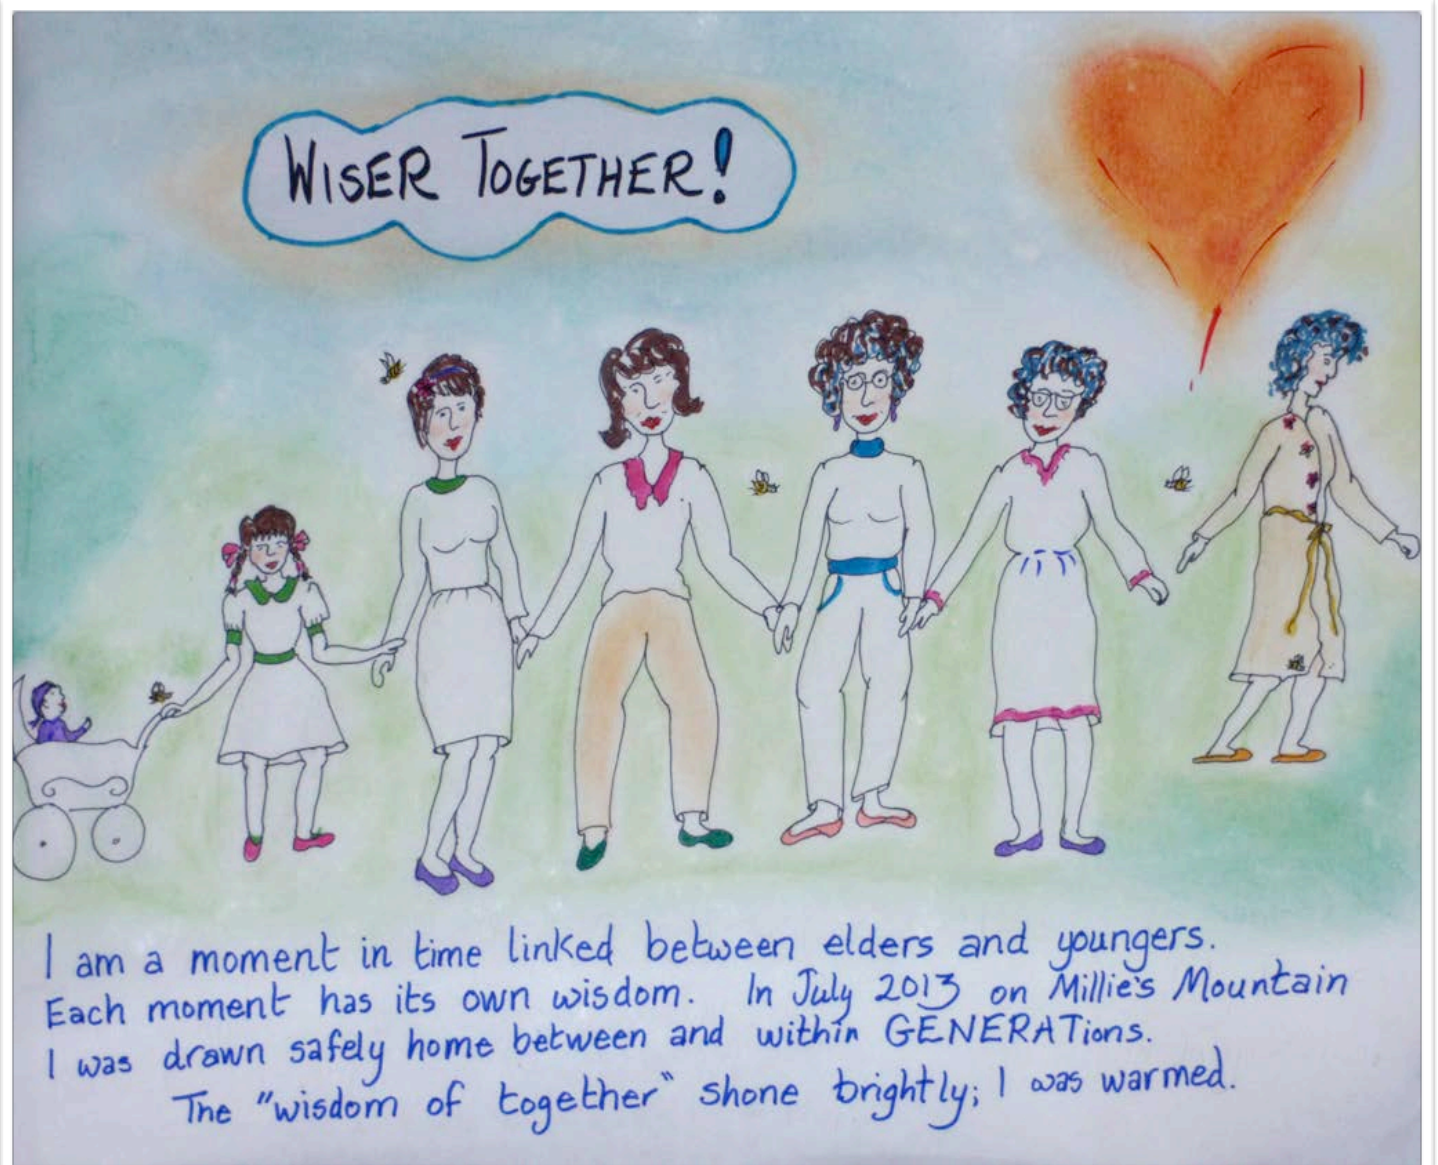 WISER TOGETHER!
I am a moment in time linked between elders and youngers.
Each moment has its own wisdom. In July 2013 on Millie's Mountain
I was drawn safely home between and within GENERATions.
The "wisdom of together" shone brightly; I was warmed.